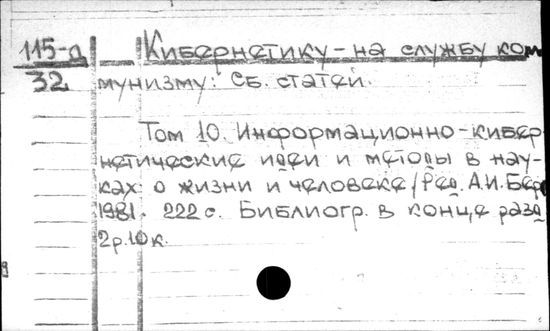 115-д Кибернетику – на службу ком
32 мунизму: Сб. статей.
Том 10. Информационно-кибер-
нетические идеи и методы в нау-
ках о жизни и человеке / Ред. А.И. Бер
1981. 222 с. Библиогр. в конце разд
2р.10к.